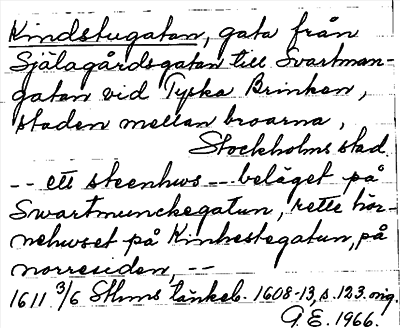 Kindstugatan, gata från
Själagårdsgatan till Svartman-
gatan vid Tyska Brinken,
staden mellan broarna,
Stockholms stad.
-- ett steenhws -- beläget på
Swartmunckegatun, rette hör-
nehwset på Kinhestegatun, på
norresiden, --
1611 3/6 Sthms tänkeb. 1608-13, s. 123. orig.
G.E. 1966.